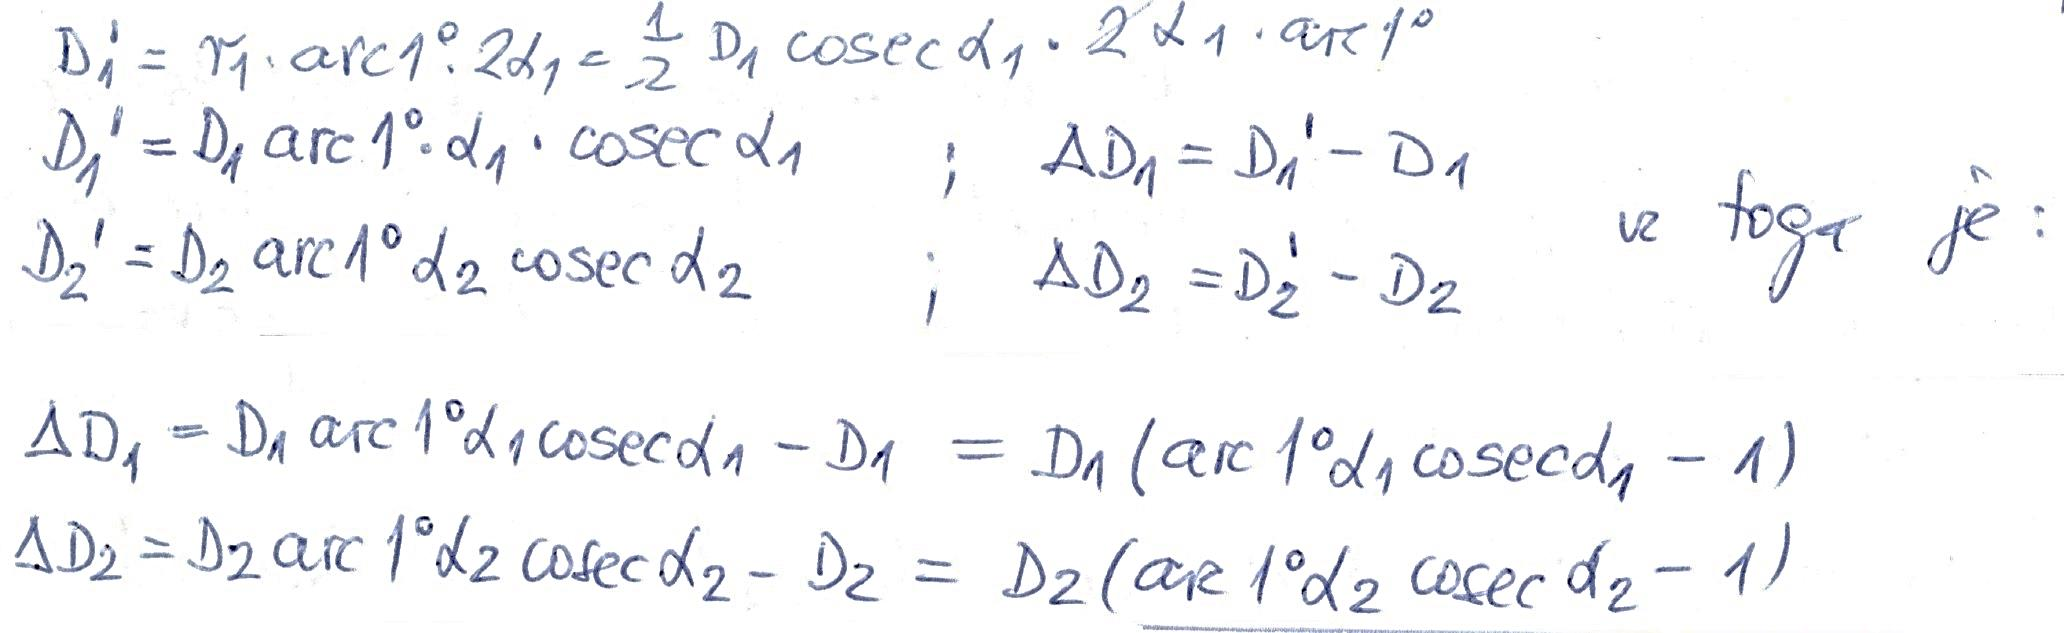 D₁' = r₁ · arc 1° · 2α₁ = 1/2 D₁ cosec α₁ · 2 α₁ · arc 1°
D₁' = D₁ arc 1° · α₁ · cosec α₁ ; ΔD₁ = D₁' − D₁
iz toga je :
D₂' = D₂ arc 1° α₂ cosec α₂ ; ΔD₂ = D₂' − D₂
ΔD₁ = D₁ arc 1° α₁ cosec α₁ − D₁ = D₁ (arc 1° α₁ cosec α₁ − 1)
ΔD₂ = D₂ arc 1° α₂ cosec α₂ − D₂ = D₂ (arc 1° α₂ cosec α₂ − 1)